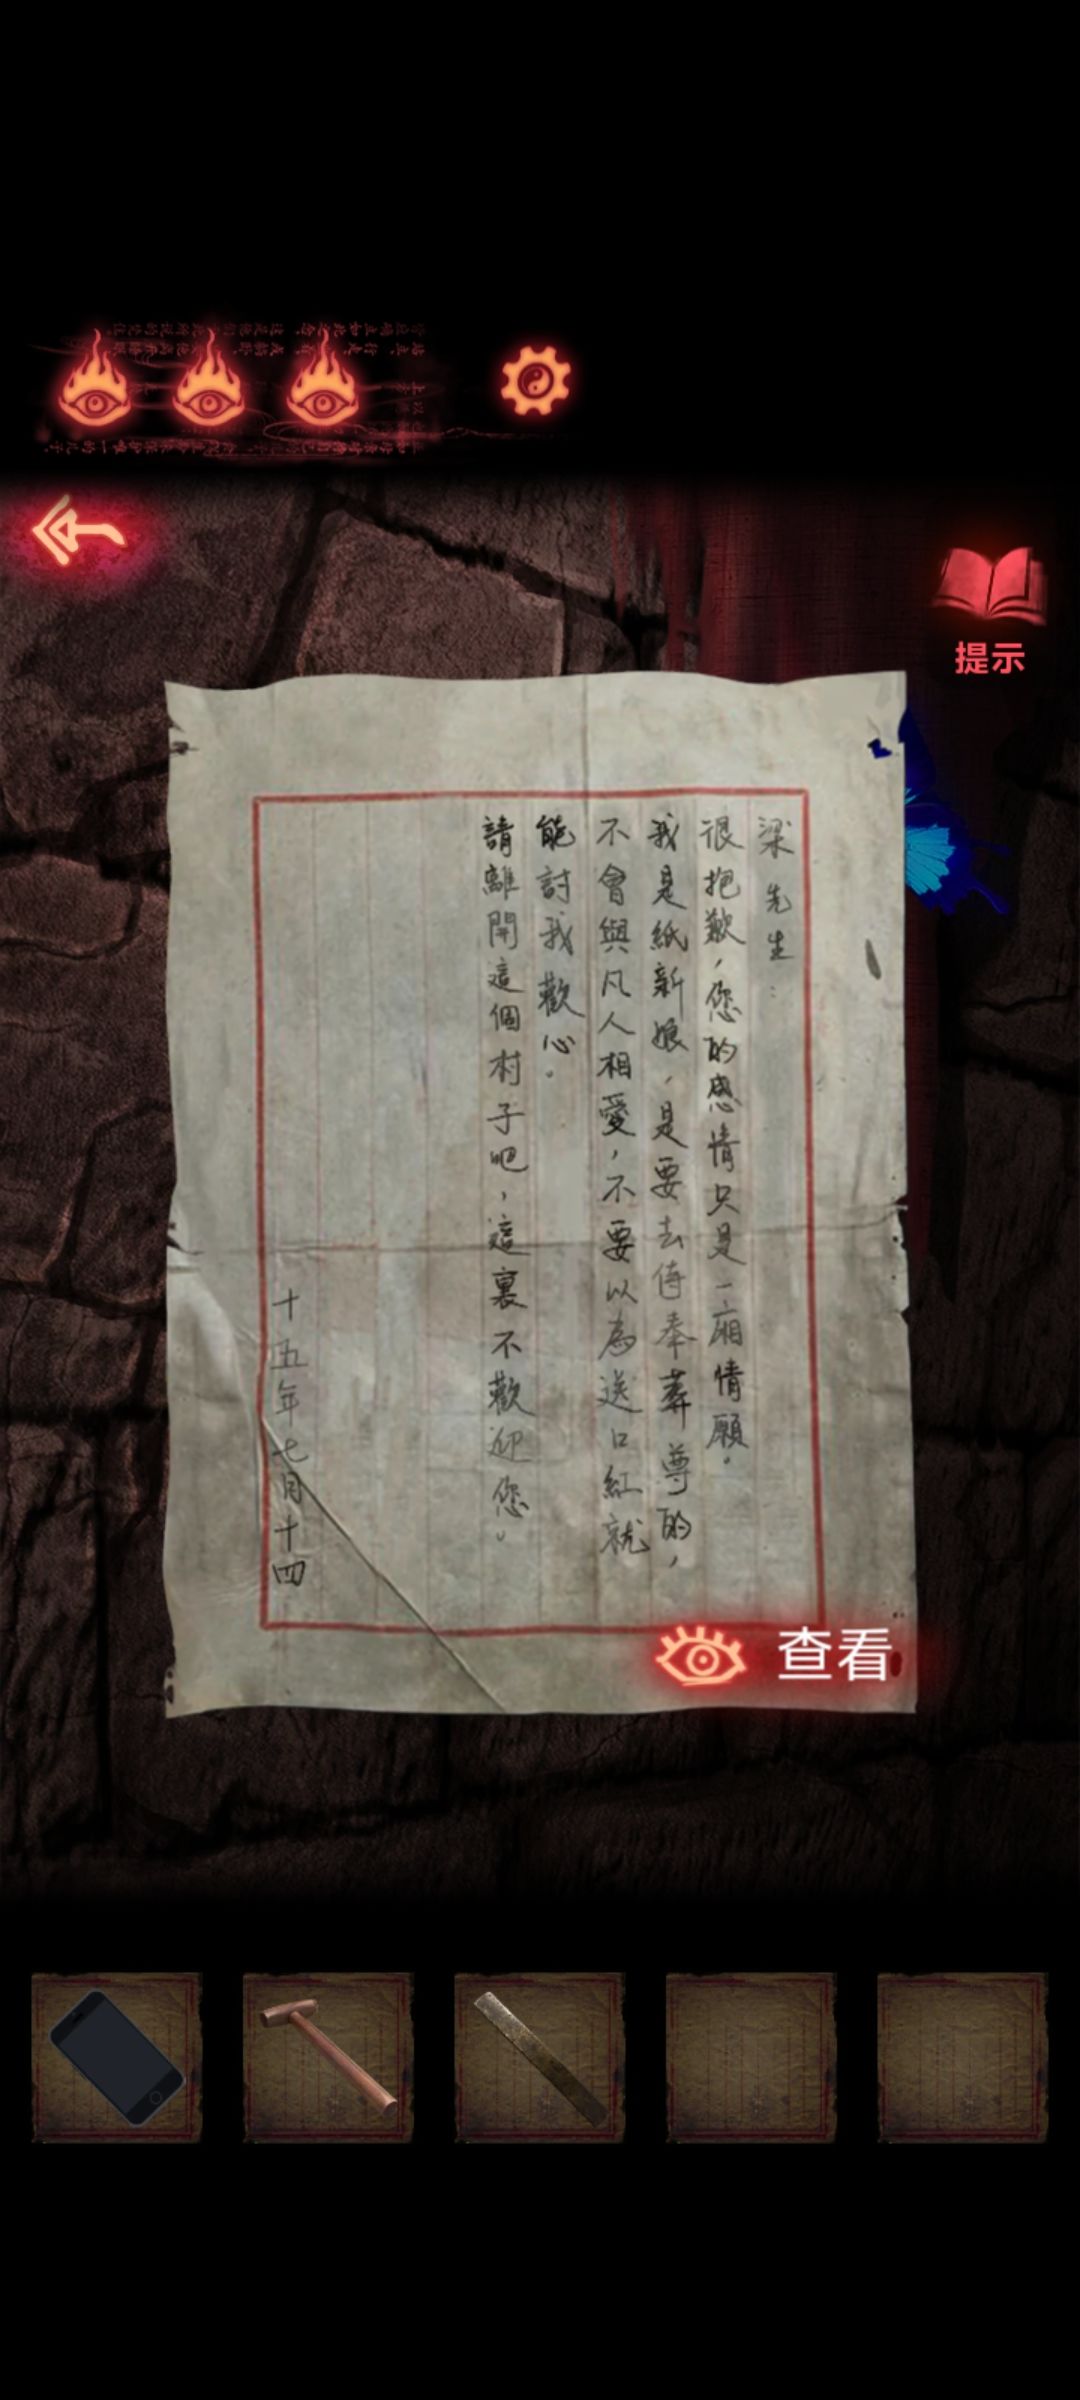 提示
梁先生：
很抱歉，您的感情只是一廂情願。
我是紙新娘，是要去侍奉葬尊的，
不會與凡人相愛，不要以為送口紅就
能討我歡心。
請離開這個村子吧，這裏不歡迎您。
十五年七月十四
查看